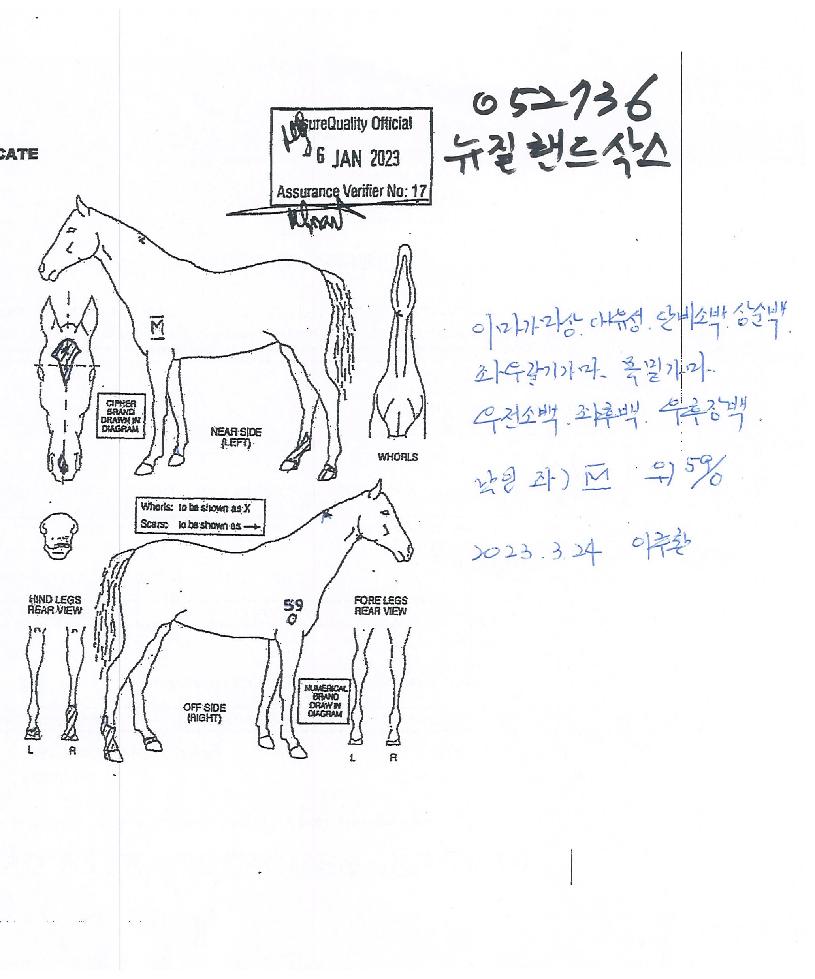 052736
뉴질랜드삭스
CATE
AssureQuality Official
6 JAN 2023
Assurance Verifier No: 17
이마가마상. 대유성. 단비소백. 상순백.
좌우갈기가마. 목밑가마.
우전소백. 좌후백. 우후장백.
낙인 좌) M 우) 59/0
2023. 3. 24 이주환
M
CIPHER
BRAND
DRAWN IN
DIAGRAM
NEAR SIDE
(LEFT)
WHORLS
Whorls: to be shown as X
Scars: to be shown as →
HIND LEGS
REAR VIEW
59
0
FORE LEGS
REAR VIEW
NUMERICAL
BRAND
DRAWN IN
DIAGRAM
OFF SIDE
(RIGHT)
L R
L R